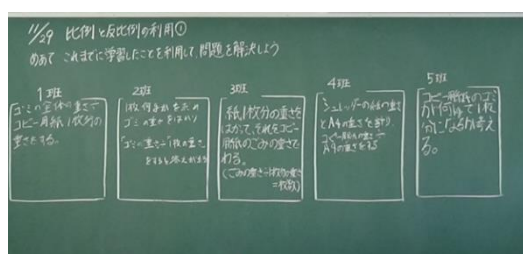 11/29 比例と反比例の利用①
めあて これまでに学習したことを利用して、問題を解決しよう
1班
ゴミの全体の重さで
コピー用紙1枚分の
重さをする。
2班
1枚何gかをもとめ
ゴミの重さをはかり
ゴミの重さ÷1枚の重さ
をすると答えが出る
3班
紙1枚分の重さを
はかって、それをコピー
用紙のごみの重さで
わる。
(ごみの重さ÷1枚分の重さ
=枚数)
4班
シュレッダーの紙の重さ
とA4の重さを計り、
コピー用紙の重さ÷
A4の重さをする
5班
コピー用紙のゴミ
が何gで1枚
分になるか考え
る。